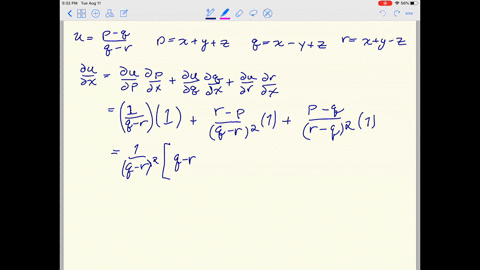 5:02 PM Tue Aug 11 56%
u = \frac{p-q}{q-r} p = x+y+z q = x-y+z r = x+y-z
\frac{∂u}{∂x} = \frac{∂u}{∂p} \frac{∂p}{∂x} + \frac{∂u}{∂q} \frac{∂q}{∂x} + \frac{∂u}{∂r} \frac{∂r}{∂x}
= (\frac{1}{q-r})(1) + \frac{r-p}{(q-r)^2}(1) + \frac{p-q}{(r-q)^2}(1)
= \frac{1}{(q-r)^2} [ q-r